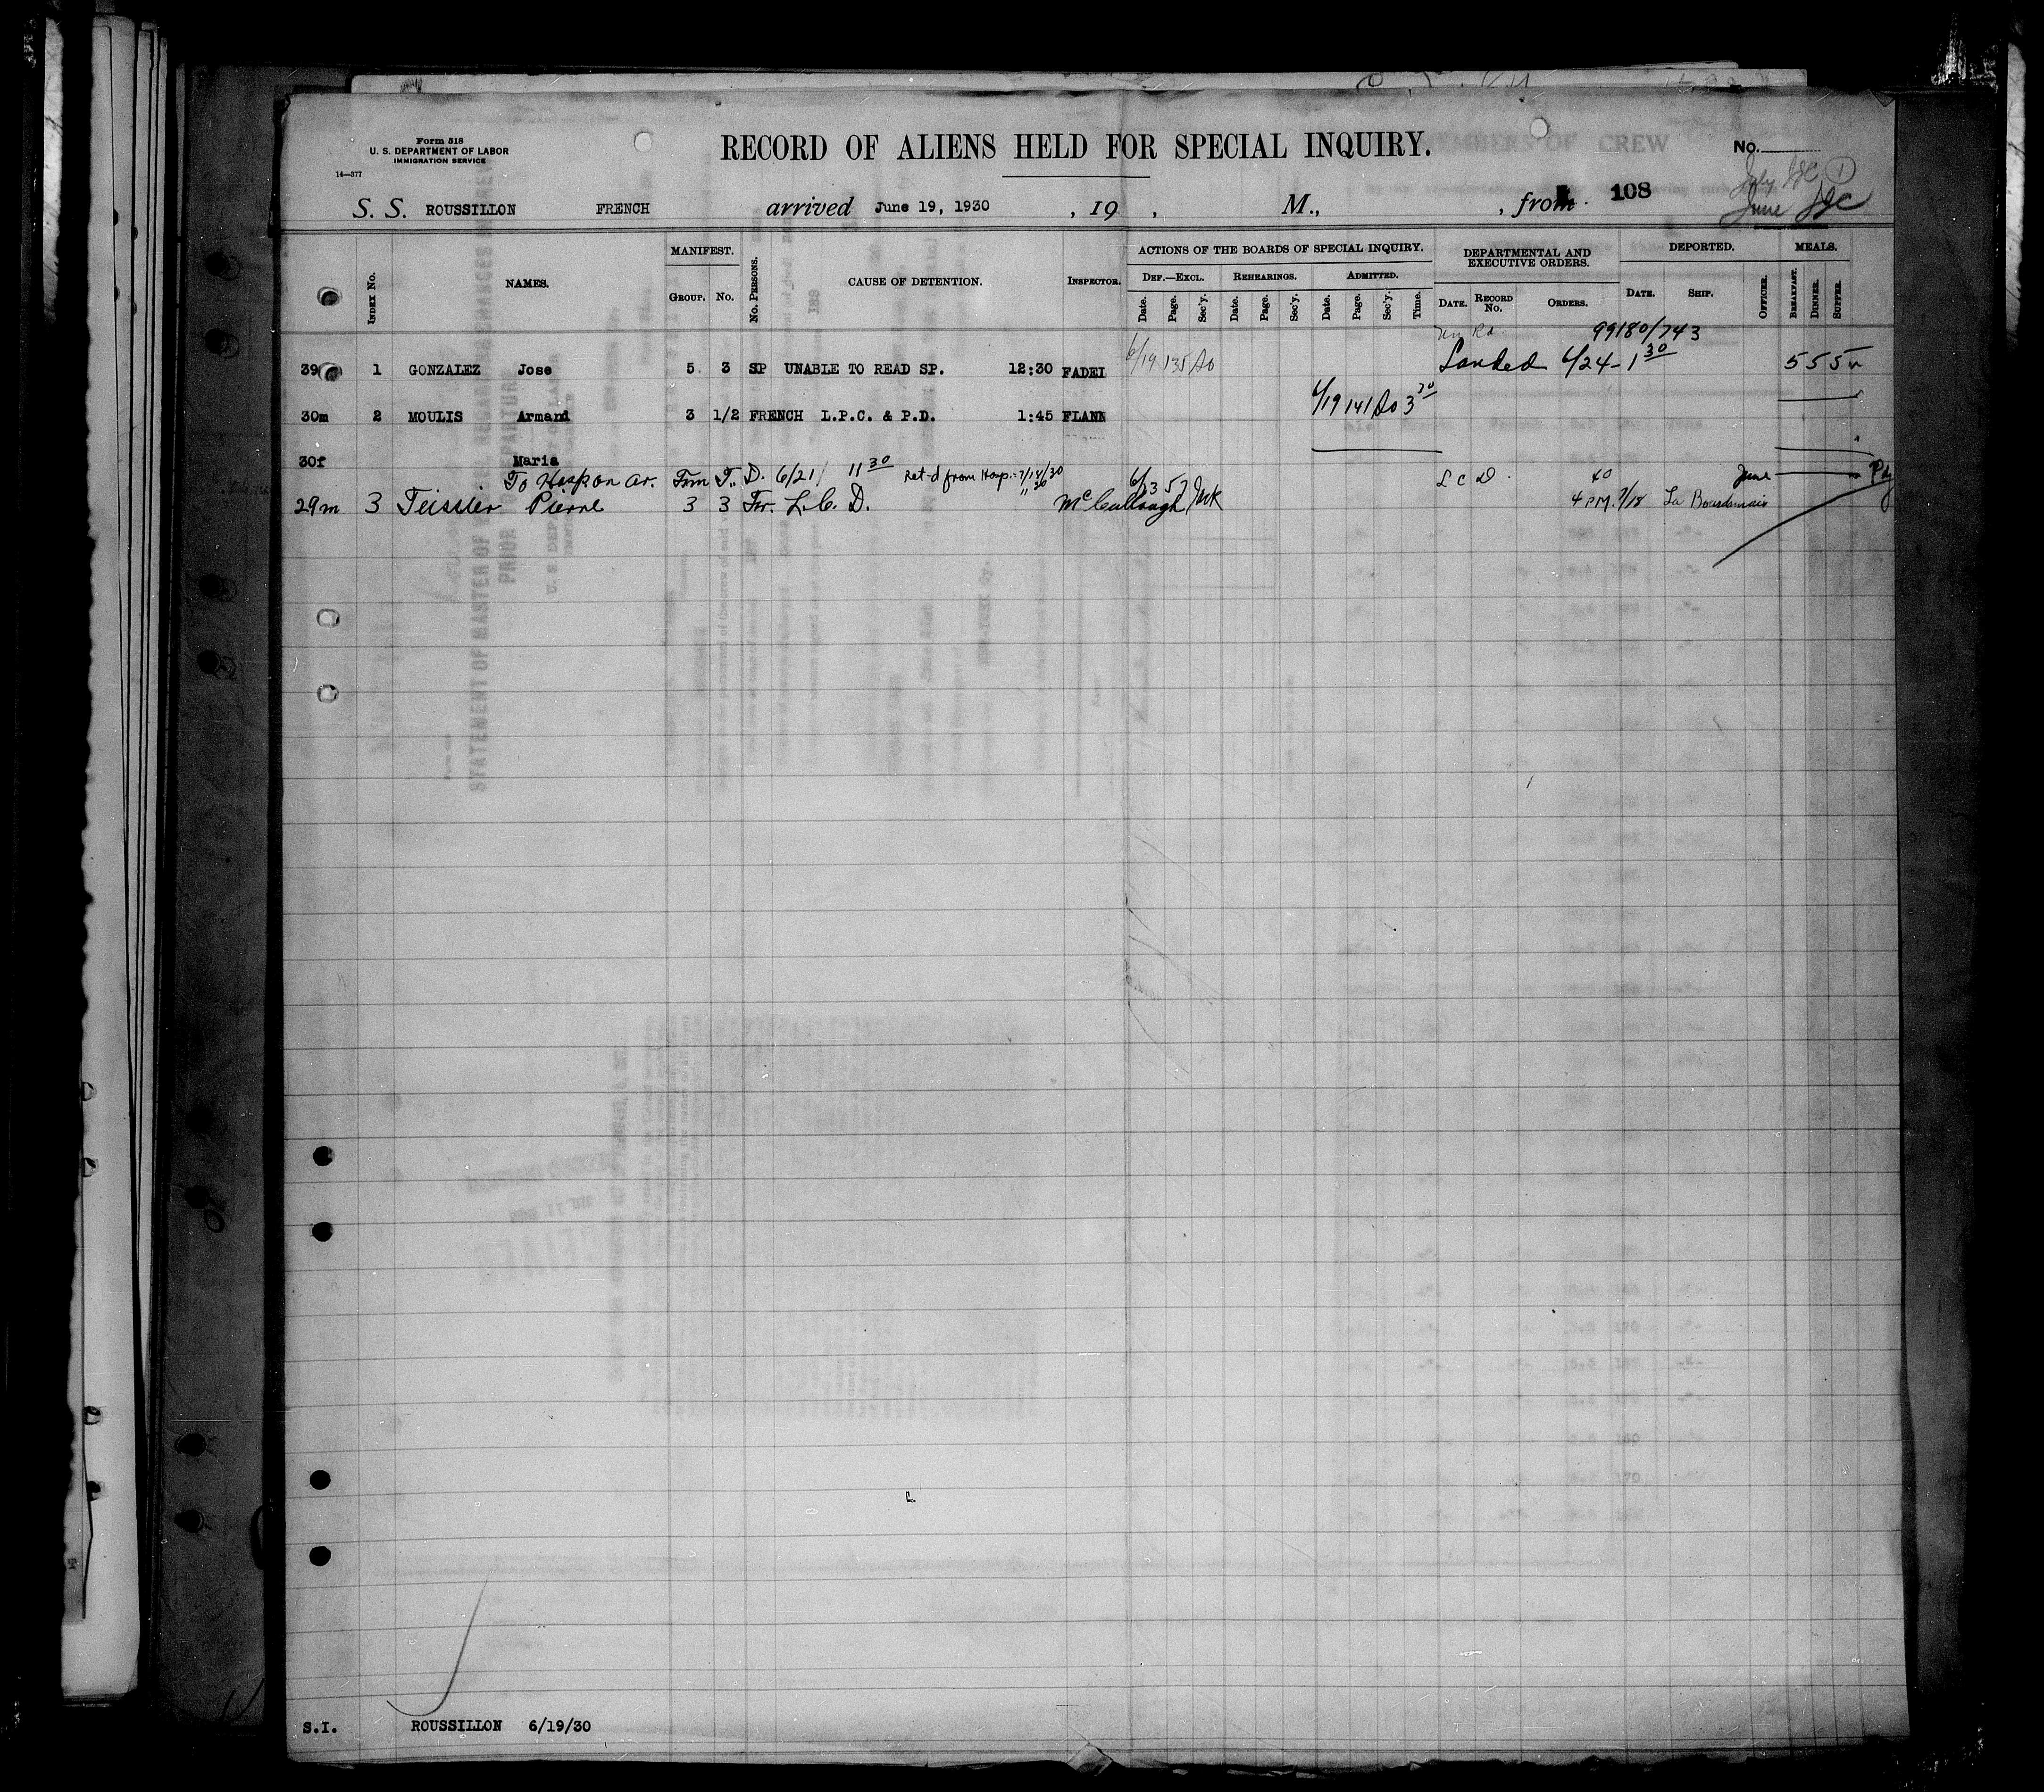 Form 518
U. S. DEPARTMENT OF LABOR
IMMIGRATION SERVICE
14—377
RECORD OF ALIENS HELD FOR SPECIAL INQUIRY.
No.
July
June
S. S. ROUSSILLON FRENCH arrived June 19, 1930 , 19 , M., , from 108
INDEX No. NAMES. MANIFEST. GROUP. No. No. PERSONS. CAUSE OF DETENTION. INSPECTOR. ACTIONS OF THE BOARDS OF SPECIAL INQUIRY. DEPARTMENTAL AND EXECUTIVE ORDERS. DEPORTED. MEALS.
DEF.—EXCL. REHEARINGS. ADMITTED.
Date. Page. Sec'y. Date. Page. Sec'y. Date. Page. Sec'y. Time. DATE. RECORD No. ORDERS. DATE. SHIP. OFFICER. BREAKFAST. DINNER. SUPPER.
99180/743
39 1 GONZALEZ Jose 5 3 SP UNABLE TO READ SP. 12:30 FADEI 6/19 135 Do Landed 6/24 - 1 30 5 5 5
30m 2 MOULIS Armand 3 1/2 FRENCH L.P.C. & P.D. 1:45 FLANN 6/19 141 Do 3 30
30f Maria
To Hosp on ar. From T. D. 6/21/ 11 30 Ret-d from Hosp. 7/14/30 L C D. June
29m 3 Teissier Pierre 3 3 Fr. L. C. D. McCullough 6/23 57 4 PM. 7/18 La Bourdonnais
S.I. ROUSSILLON 6/19/30